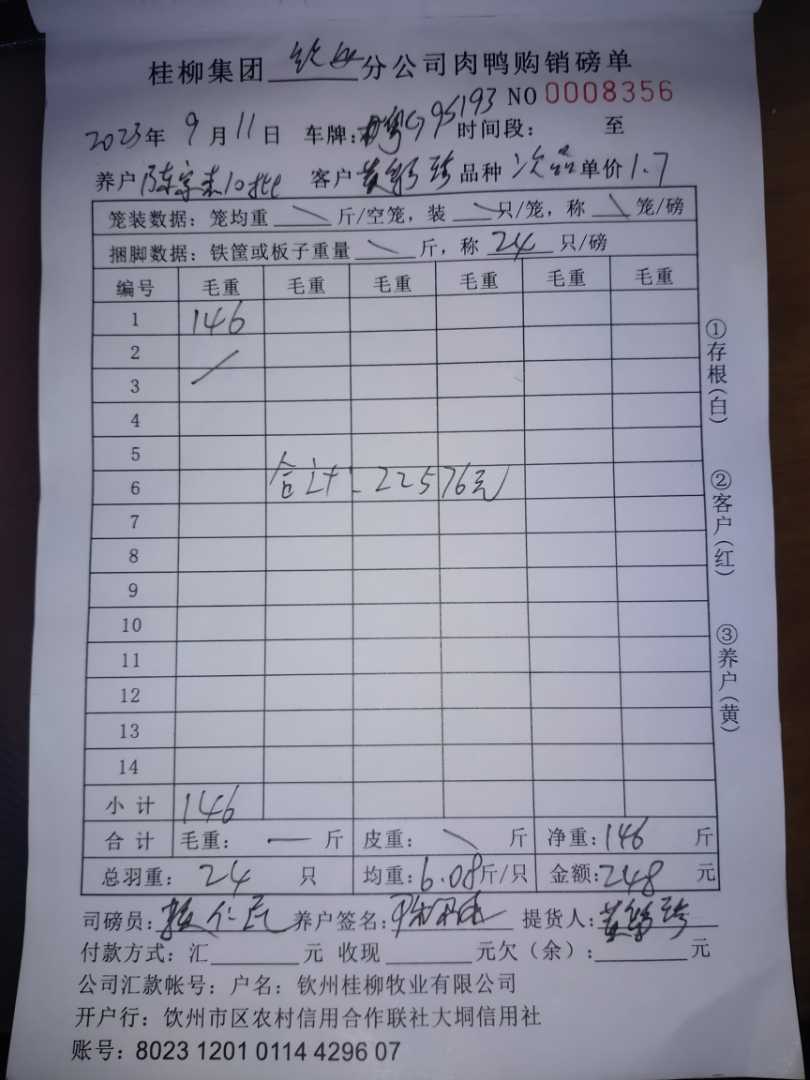 桂柳集团 钦州 分公司肉鸭购销磅单
NO 0008356
2023年 9月 11日 车牌: G95193 时间段: 至
养户 陈 10批 客户 黄 珍 品种 次品 单价 1.7
笼装数据: 笼均重 \ 斤/空笼, 装 \ 只/笼, 称 \ 笼/磅
捆脚数据: 铁筐或板子重量 \ 斤, 称 24 只/磅
编号 毛重 毛重 毛重 毛重 毛重 毛重
1 146
2
3
4
5
6 合计: 22576元
7
8
9
10
11
12
13
14
小计 146
合计 毛重: — 斤 皮重: \ 斤 净重: 146 斤
总羽重: 24 只 均重: 6.08斤/只 金额: 248 元
司磅员: 仁 养户签名: 陈 提货人: 黄 珍
付款方式: 汇 元 收现 元欠(余): 元
公司汇款帐号: 户名: 钦州桂柳牧业有限公司
开户行: 饮州市区农村信用合作联社大垌信用社
账号: 8023 1201 0114 4296 07
①存根(白)
②客户(红)
③养户(黄)